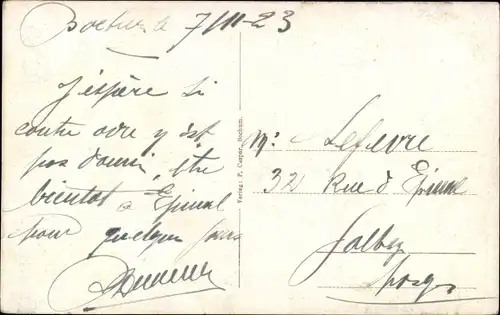 Bochum le 7/11-23
J'espère si
contre ordre n'est
pas donné, être
bientôt à Epinal
pour quelques jours
Verlag: F. Casper, Bochum.
Mr Lefevre
32 Rue d'Epinal
Golbey
Vosges